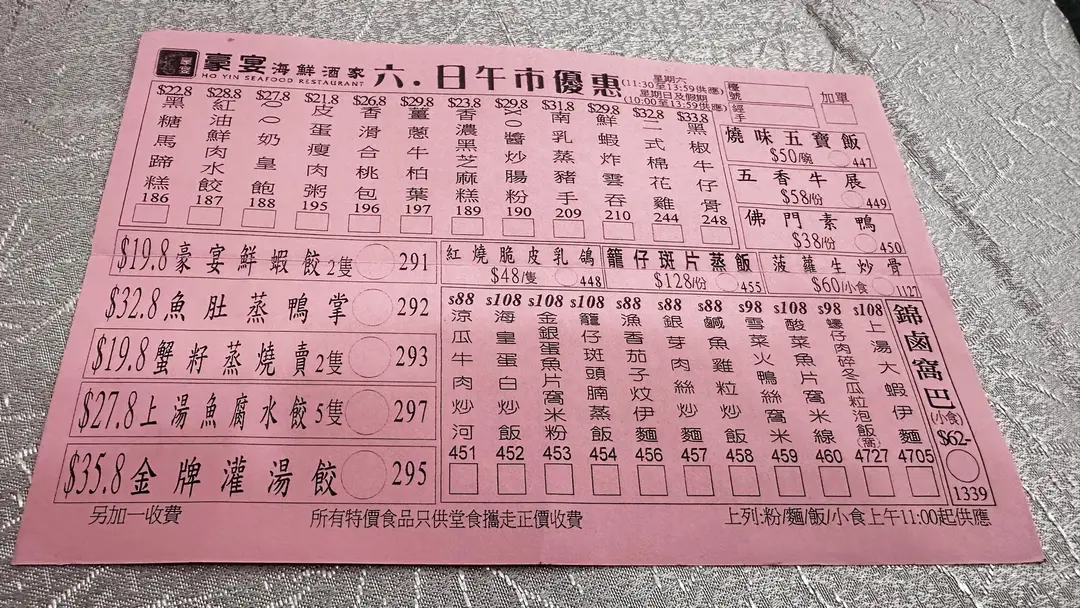 豪宴
豪宴海鮮酒家
HO YIN SEAFOOD RESTAURANT
六.日午市優惠
星期六
(11:30至13:59供應)
星期日及假期
(10:00至13:59供應)
檯號
經手
加單
$22.8 黑糖馬蹄糕 186
$28.8 紅油鮮肉水餃 187
$27.8 奶皇飽 188
$21.8 皮蛋瘦肉粥 195
$26.8 香滑合桃包 196
$29.8 薑蔥牛柏葉 197
$23.8 香濃黑芝麻糕 189
$29.8 XO醬炒腸粉 190
$31.8 南乳蒸豬手 209
$29.8 鮮蝦炸雲吞 210
$32.8 二式棉花雞 244
$33.8 黑椒牛仔骨 248
燒味五寶飯
$50/碗 447
五香牛展
$58/份 449
佛門素鴨
$38/份 450
$19.8 豪宴鮮蝦餃 2隻 291
$32.8 魚肚蒸鴨掌 292
$19.8 蟹籽蒸燒賣 2隻 293
$27.8 上湯魚腐水餃 5隻 297
$35.8 金牌灌湯餃 295
紅燒脆皮乳鴿
$48/隻 448
籠仔斑片蒸飯
$128/份 455
菠蘿生炒骨
$60/小食 1127
$88 涼瓜牛肉炒河 451
$108 海皇蛋白炒飯 452
$108 金銀蛋魚片窩米粉 453
$108 籠仔斑頭腩蒸飯 454
$88 漁香茄子炆伊麵 456
$88 銀芽肉絲炒麵 457
$88 鹹魚雞粒炒飯 458
$98 雪菜火鴨絲窩米 459
$108 酸菜魚片窩米線 460
$98 蠔仔肉碎冬瓜粒泡飯(窩) 4727
$108 上湯大蝦伊麵 4705
錦鹵窩巴
(小食)
$62-
1339
另加一收費
所有特價食品只供堂食攜走正價收費
上列:粉/麵/飯/小食上午11:00起供應